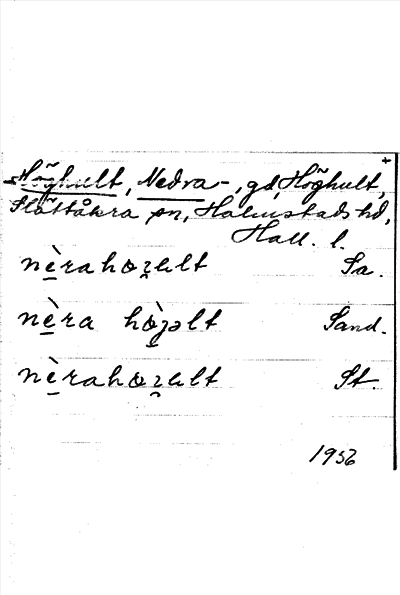 +
Höghult, Nedra-, gd, Höghult,
Slättåkra sn, Halmstads hd,
Hall. l.
nè̱rahoʓult Sa.
nè̱ra hòʓəlt Sand.
nè̱rahoʓult St.
1956